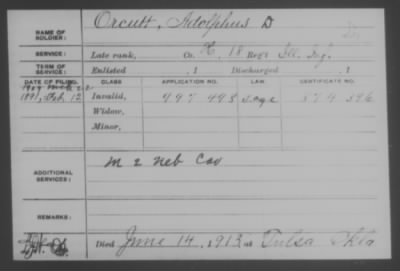 Orcutt, Adolphus D
NAME OF SOLDIER:
SERVICE: Late rank, Co. H, 18 Reg't Ill. Inf.
TERM OF SERVICE: Enlisted , 1 Discharged , 1
DATE OF FILING. CLASS. APPLICATION NO. LAW. CERTIFICATE NO.
1891, Feb. 12 Invalid, 997 495 574 596
Widow,
Minor,
ADDITIONAL SERVICES: M 2 Neb Cav
REMARKS:
Died June 14, 1913, at Tulsa Okla